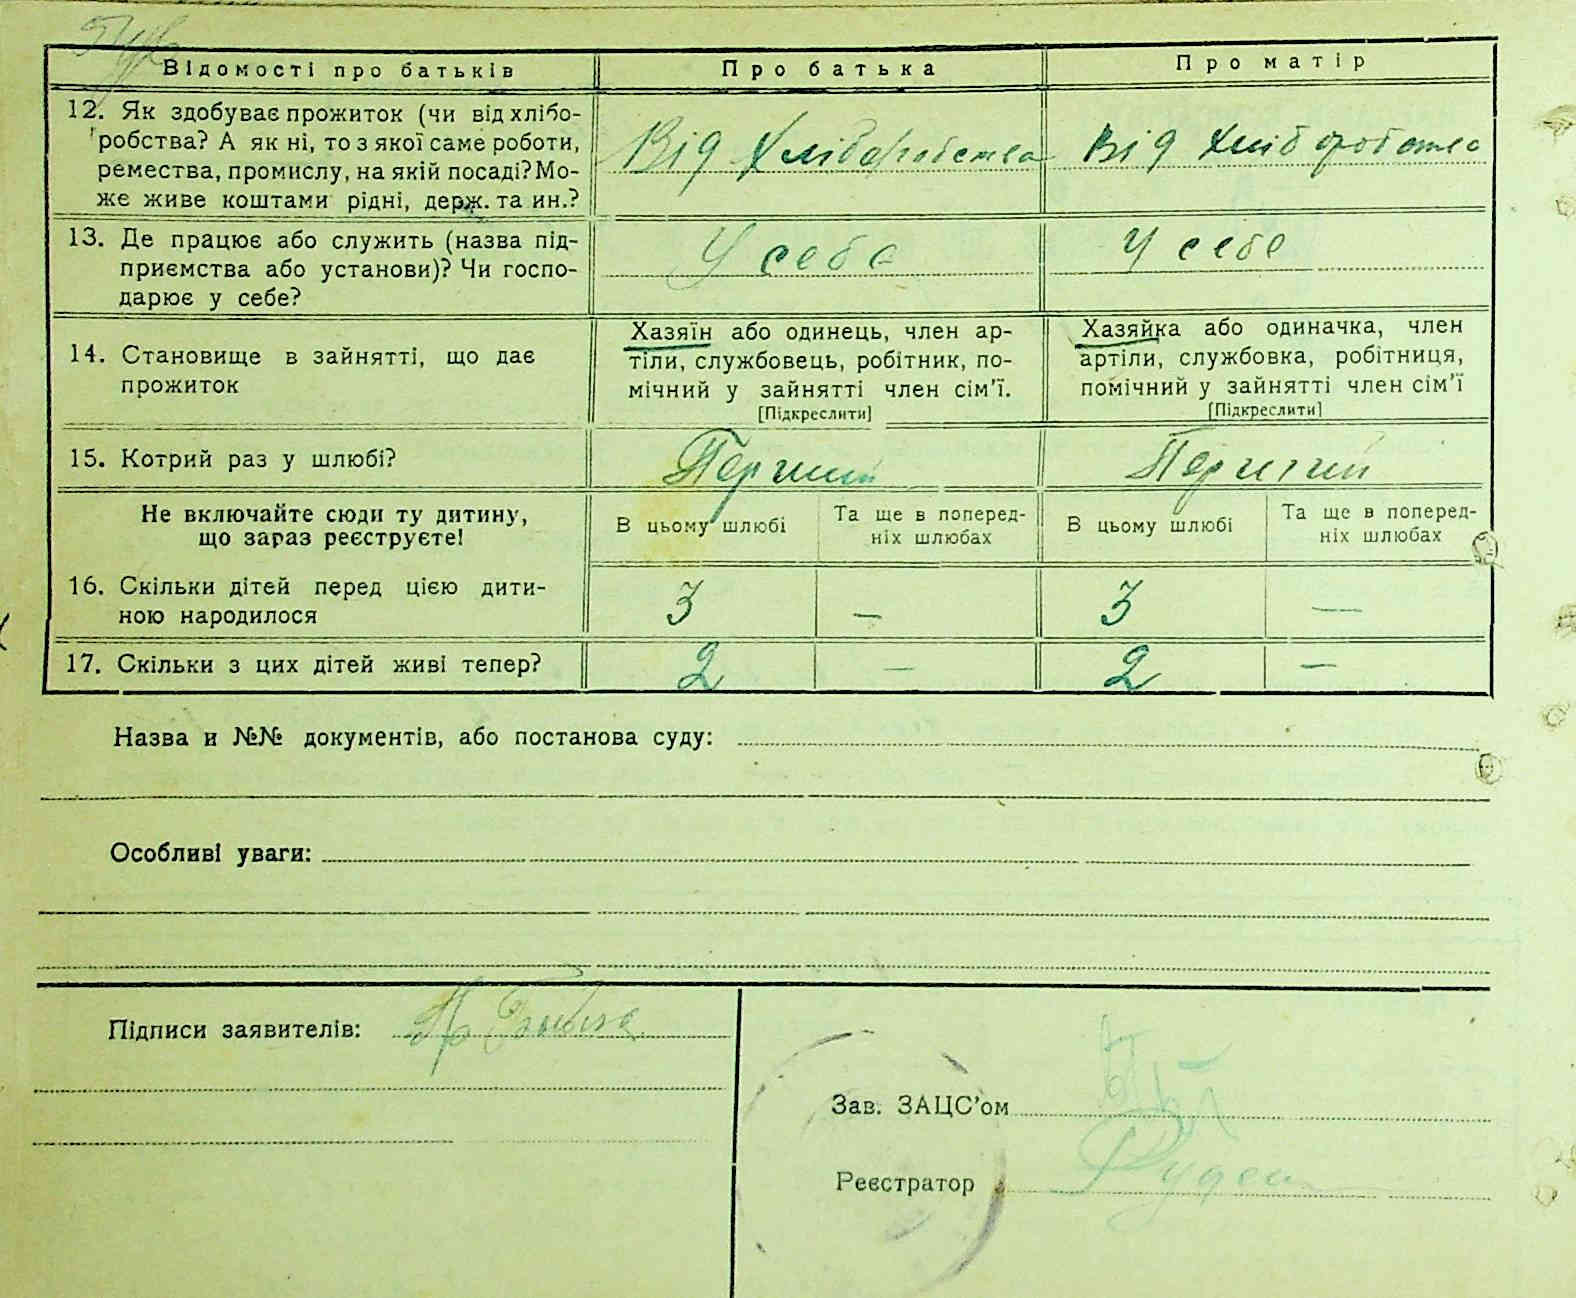 Відомості про батьків
Про батька
Про матір
12. Як здобуває прожиток (чи від хлібо-
робства? А як ні, то з якої саме роботи,
ремества, промислу, на якій посаді? Мо-
же живе коштами рідні, держ. та ин.?
Від Хліборобства
Від Хліборобства
13. Де працює або служить (назва під-
приємства або установи)? Чи госпо-
дарює у себе?
У себе
У себе
14. Становище в зайнятті, що дає
прожиток
Хазяїн або одинець, член ар-
тіли, службовець, робітник, по-
мічний у зайнятті член сім'ї.
[Підкреслити]
Хазяйка або одиначка, член
артіли, службовка, робітниця,
помічний у зайнятті член сім'ї
[Підкреслити]
15. Котрий раз у шлюбі?
Перший
Перший
Не включайте сюди ту дитину,
що зараз реєструєте!
В цьому шлюбі
Та ще в поперед-
ніх шлюбах
В цьому шлюбі
Та ще в поперед-
ніх шлюбах
16. Скільки дітей перед цією дити-
ною народилося
3
—
3
—
17. Скільки з цих дітей живі тепер?
2
—
2
—
Назва и №№ документів, або постанова суду:
Особливі уваги:
Підписи заявителів:
Зав. ЗАЦС'ом
Реєстратор